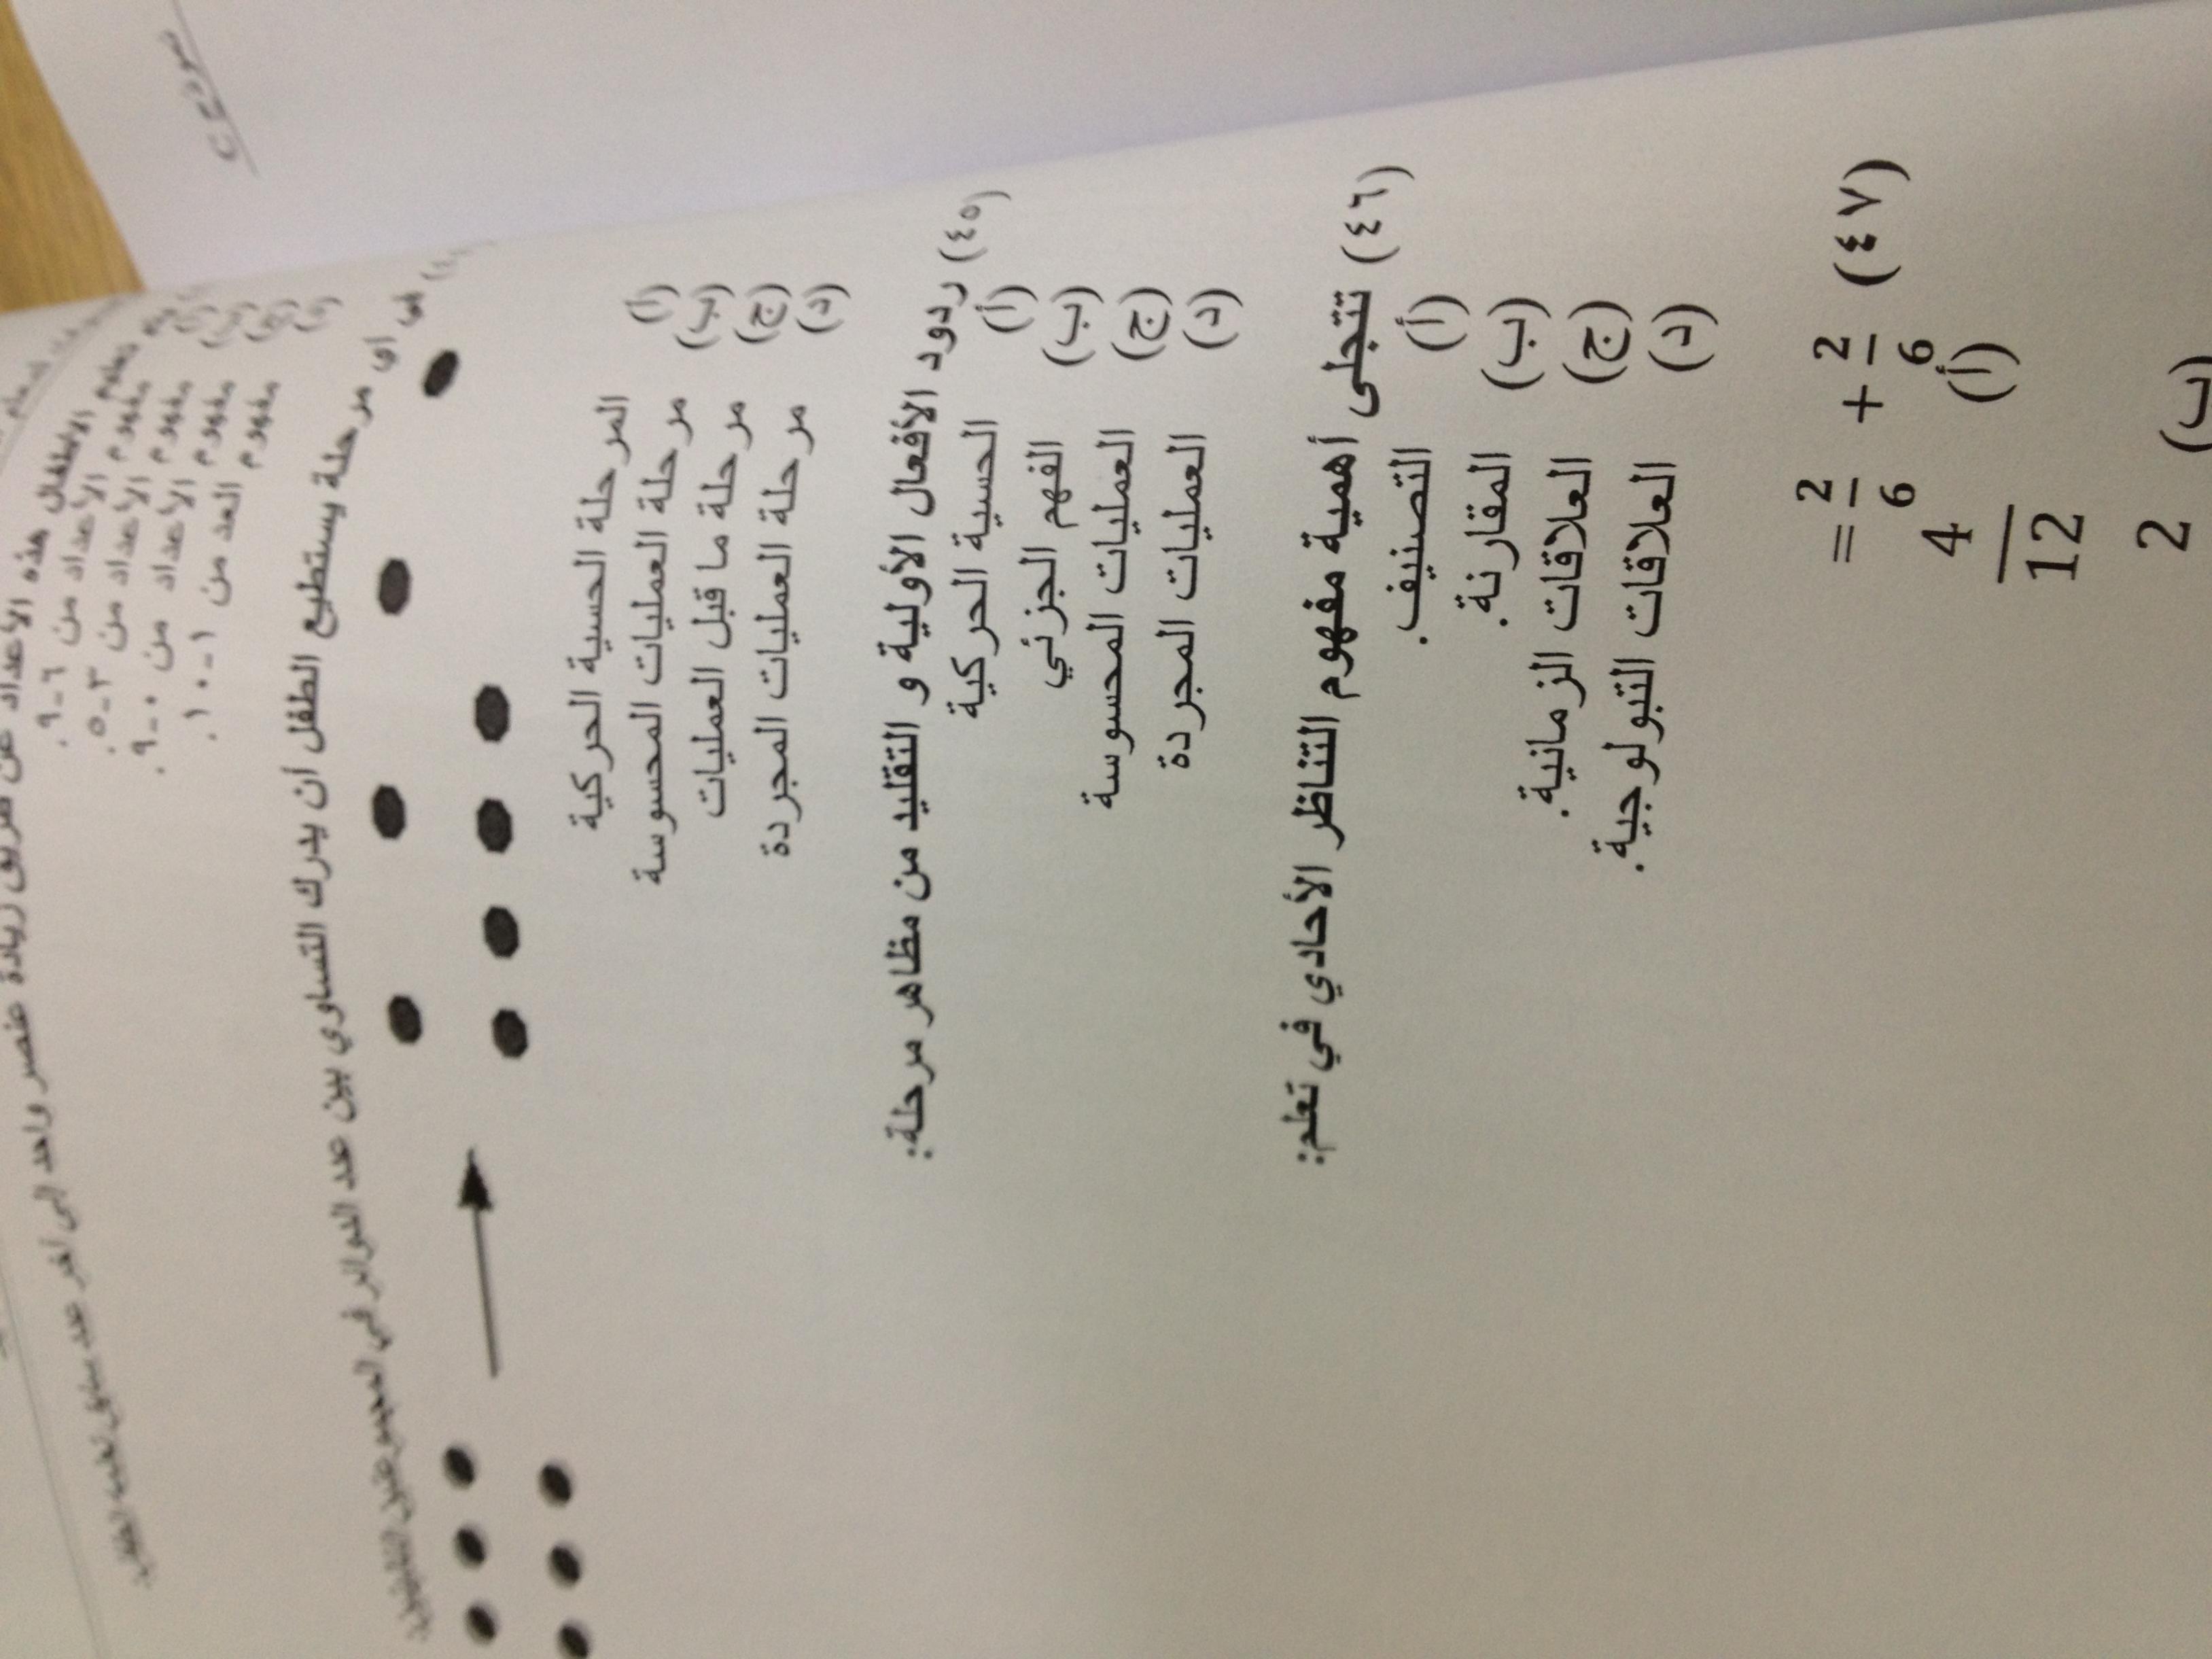 نموذج ب
هذه الأعداد عن طريق زيادة عنصر واحد إلى آخر عدد سابق تعلمه الطفل
تعلم الأطفال
مفهوم الأعداد من ٦-٩.
مفهوم الأعداد من ٣-٥.
مفهوم الأعداد من ٠-٩.
مفهوم العدد من ١-١٠.
في أي مرحلة يستطيع الطفل أن يدرك التساوي بين عدد الدوائر في المجموعتين
(أ) المرحلة الحسية الحركية
(ب) مرحلة العمليات المحسوسة
(ج) مرحلة ما قبل العمليات
(د) مرحلة العمليات المجردة
(٤٥) ردود الأفعال الأولية و التقليد من مظاهر مرحلة:
(أ) الحسية الحركية
(ب) الفهم الجزئي
(ج) العمليات المحسوسة
(د) العمليات المجردة
(٤٦) تتجلى أهمية مفهوم التناظر الأحادي في تعلم:
(أ) التصنيف.
(ب) المقارنة.
(ج) العلاقات الزمانية.
(د) العلاقات التبولوجية.
(٤٧) 2/6 + 2/6 =
(أ) 4/12
(ب) 2